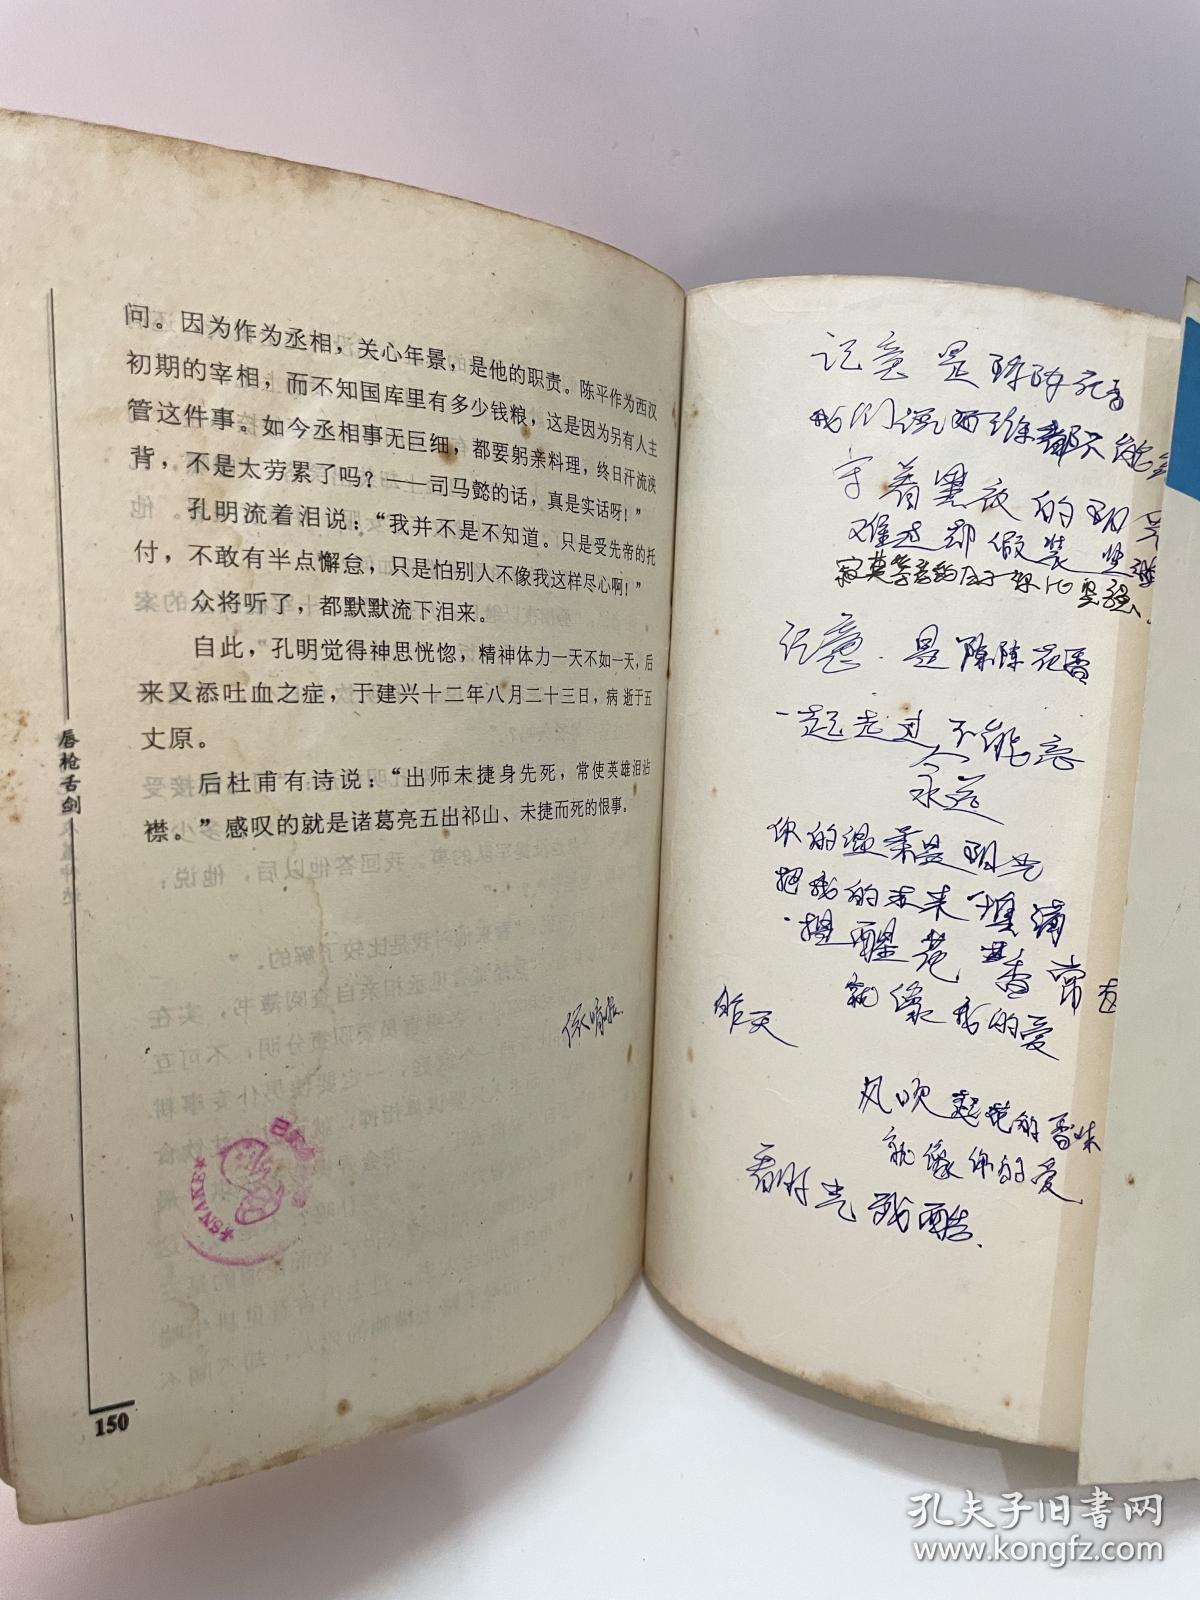 问。因为作为丞相，关心年景，是他的职责。陈平作为西汉
初期的宰相，而不知国库里有多少钱粮，这是因为另有人主
管这件事。如今丞相事无巨细，都要躬亲料理，终日汗流浃
背，不是太劳累了吗？——司马懿的话，真是实话呀！”
孔明流着泪说：“我并不是不知道。只是受先帝的托
付，不敢有半点懈怠，只是怕别人不像我这样尽心啊！”
众将听了，都默默流下泪来。
自此，孔明觉得神思恍惚，精神体力一天不如一天，后
来又添吐血之症，于建兴十二年八月二十三日，病逝于五
丈原。
后杜甫有诗说：“出师未捷身先死，常使英雄泪沾
襟。”感叹的就是诸葛亮五出祁山、未捷而死的恨事。
唇枪舌剑
150
*SNAKE*
记忆是阵阵花香
我们说
守着黑夜的阳光
难过却假装坚强
记忆是阵阵花香
一起走过不能忘
永远
你的温柔是阳光
把我的未来填满
提醒花香常在
就像我的爱
昨天
风吹起花的香味
就像你的爱
看时光
孔夫子旧书网
www.kongfz.com